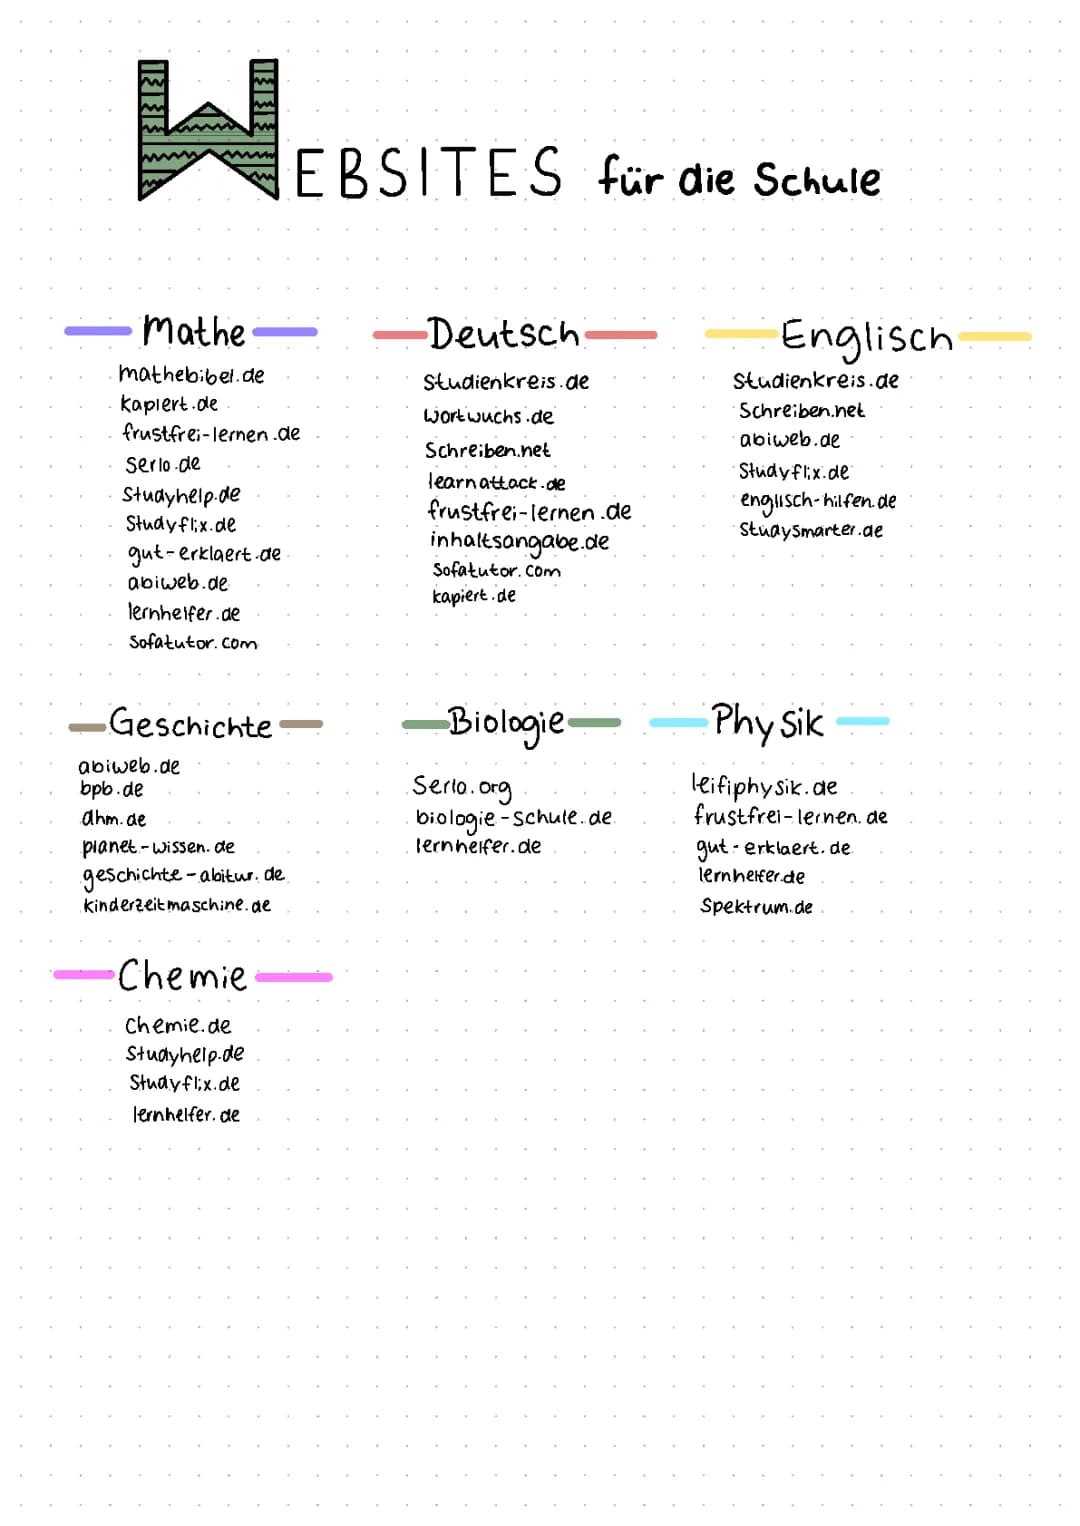 WEBSITES für die Schule
Mathe
mathebibel.de
kapiert.de
frustfrei-lernen.de
Serlo.de
Studyhelp.de
Studyflix.de
gut-erklaert.de
abiweb.de
lernhelfer.de
Sofatutor.com
Deutsch
Studienkreis.de
Wortwuchs.de
Schreiben.net
learnattack.de
frustfrei-lernen.de
inhaltsangabe.de
Sofatutor.com
kapiert.de
Englisch
Studienkreis.de
Schreiben.net
abiweb.de
Studyflix.de
englisch-hilfen.de
StudySmarter.de
Geschichte
abiweb.de
bpb.de
dhm.de
planet-wissen.de
geschichte-abitur.de
kinderzeitmaschine.de
Biologie
Serlo.org
biologie-schule.de
lernhelfer.de
Physik
leifiphysik.de
frustfrei-lernen.de
gut-erklaert.de
lernhelfer.de
Spektrum.de
Chemie
Chemie.de
Studyhelp.de
Studyflix.de
lernhelfer.de